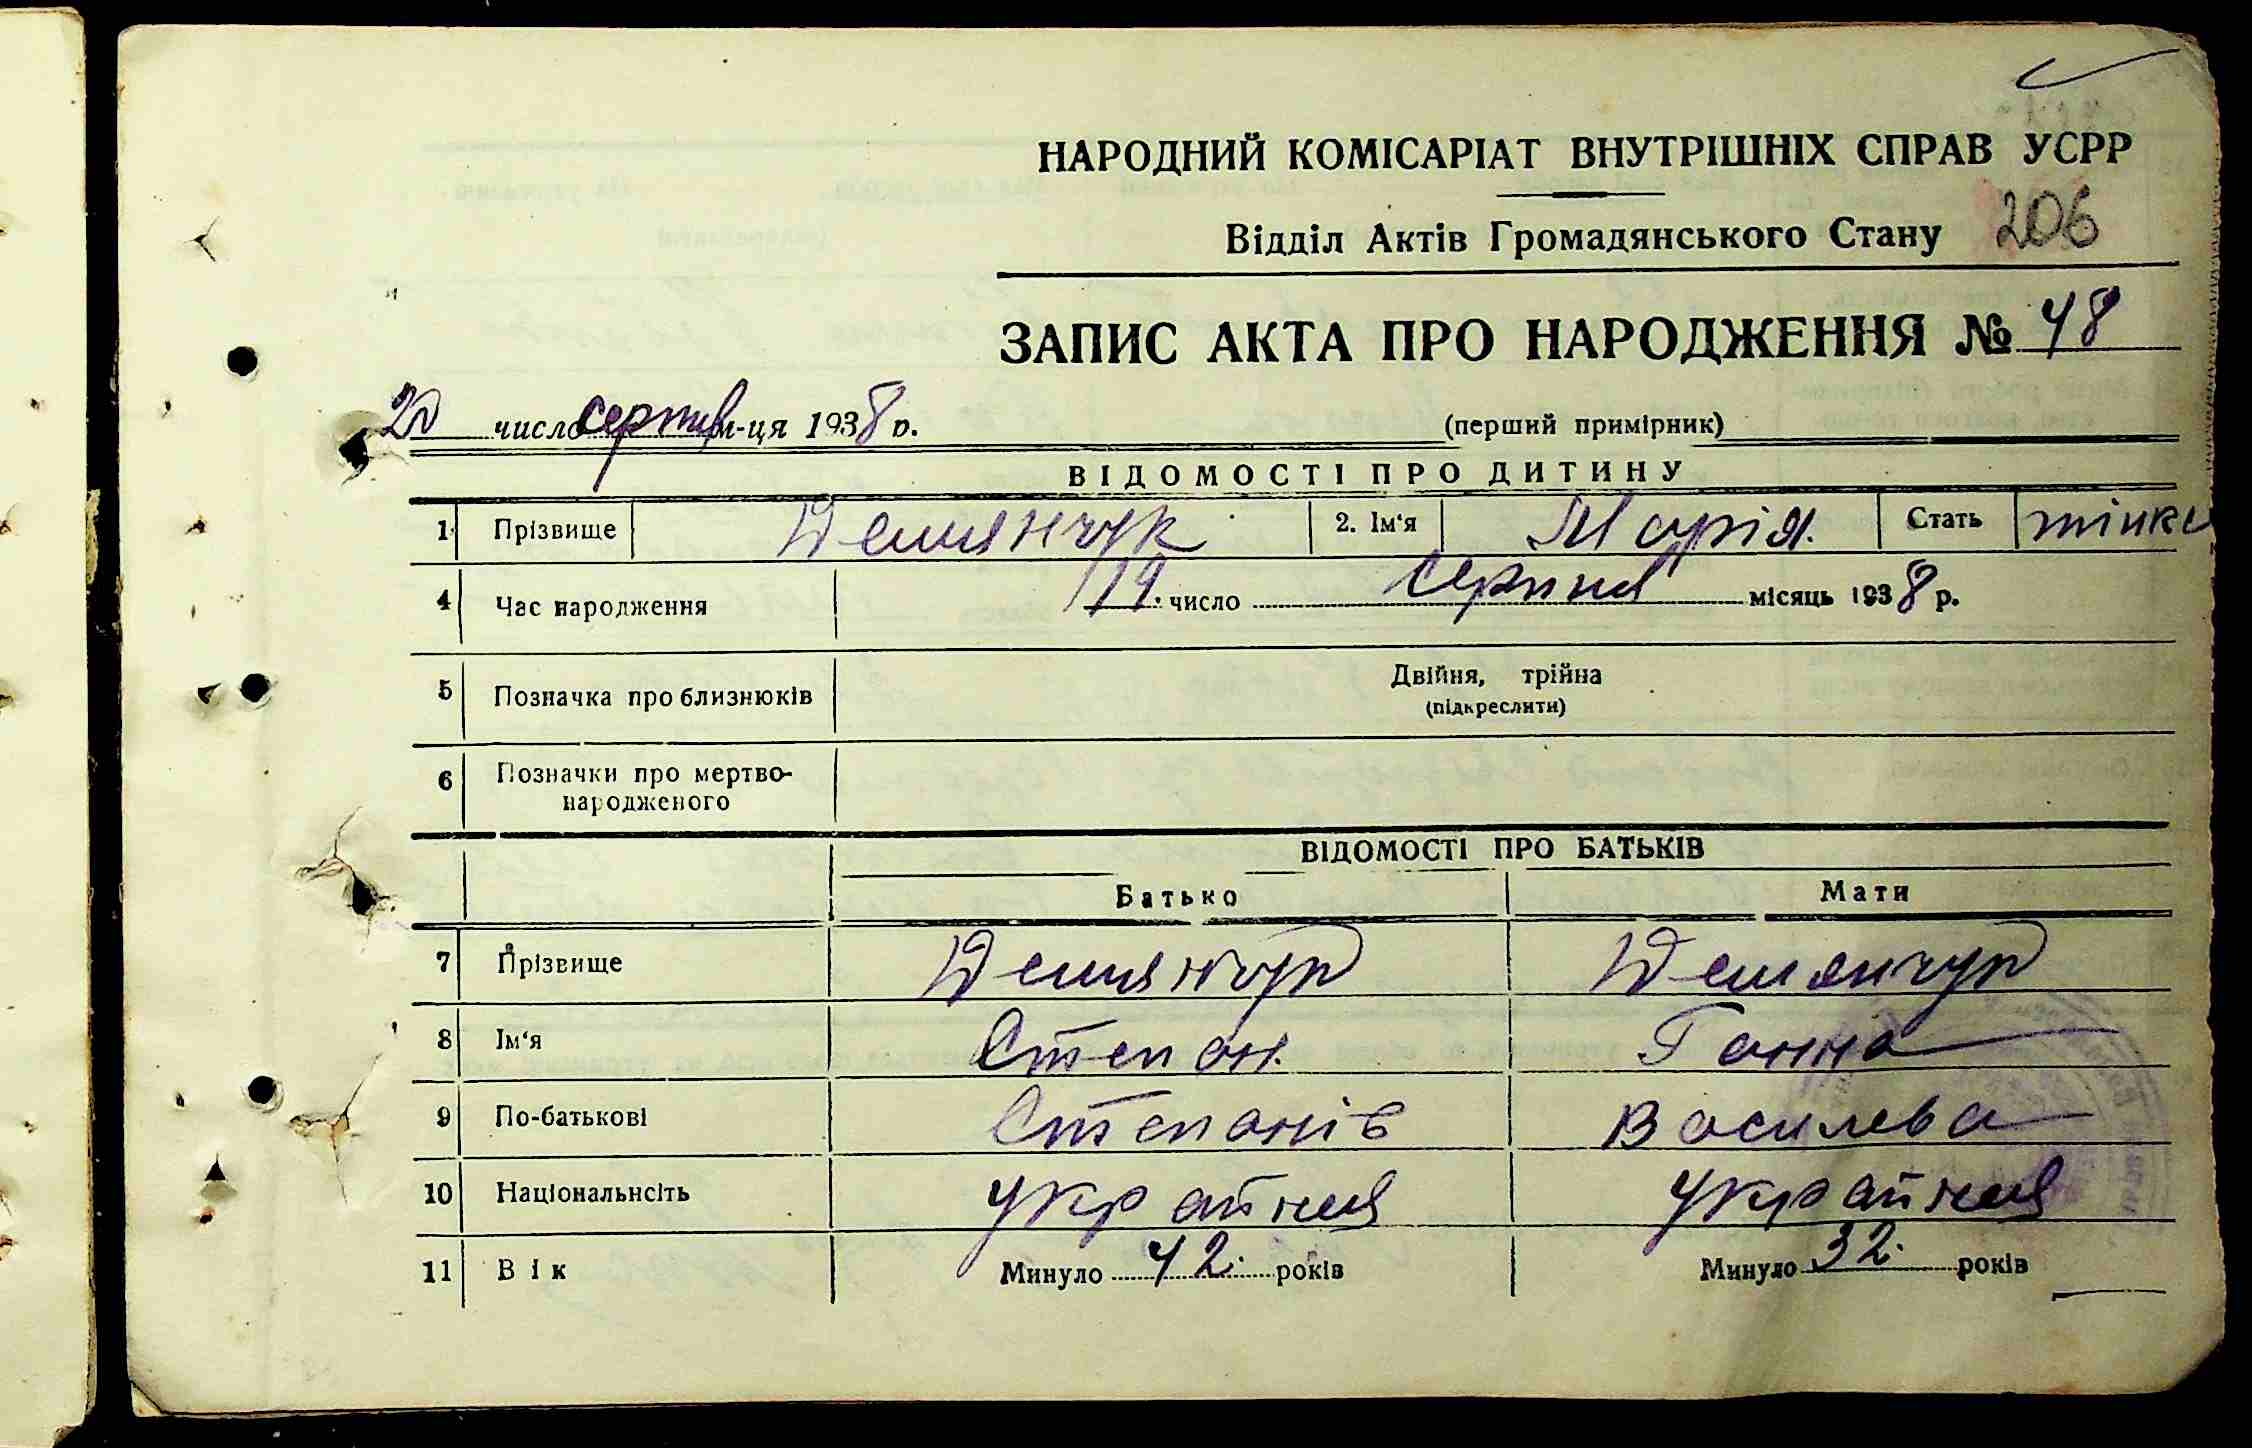 НАРОДНИЙ КОМІСАРІАТ ВНУТРІШНІХ СПРАВ УСРР
Відділ Актів Громадянського Стану 206
ЗАПИС АКТА ПРО НАРОДЖЕННЯ № 48
20 число серпня м-ця 1938 р.
(перший примірник)
ВІДОМОСТІ ПРО ДИТИНУ
1 Прізвище Демянчук 2. Ім'я Марія. Стать жінки
4 Час народження 19. число серпня місяць 1938 р.
5 Позначка про близнюків Двійня, трійна
(підкреслити)
6 Позначки про мертво-
народженого
ВІДОМОСТІ ПРО БАТЬКІВ
Батько Мати
7 Прізвище Демянчук Демянчук
8 Ім'я Степан. Ганна
9 По-батькові Степанів Василева
10 Національнсіть Украйнця Украйнця
11 Вік Минуло 42. років Минуло 32. років